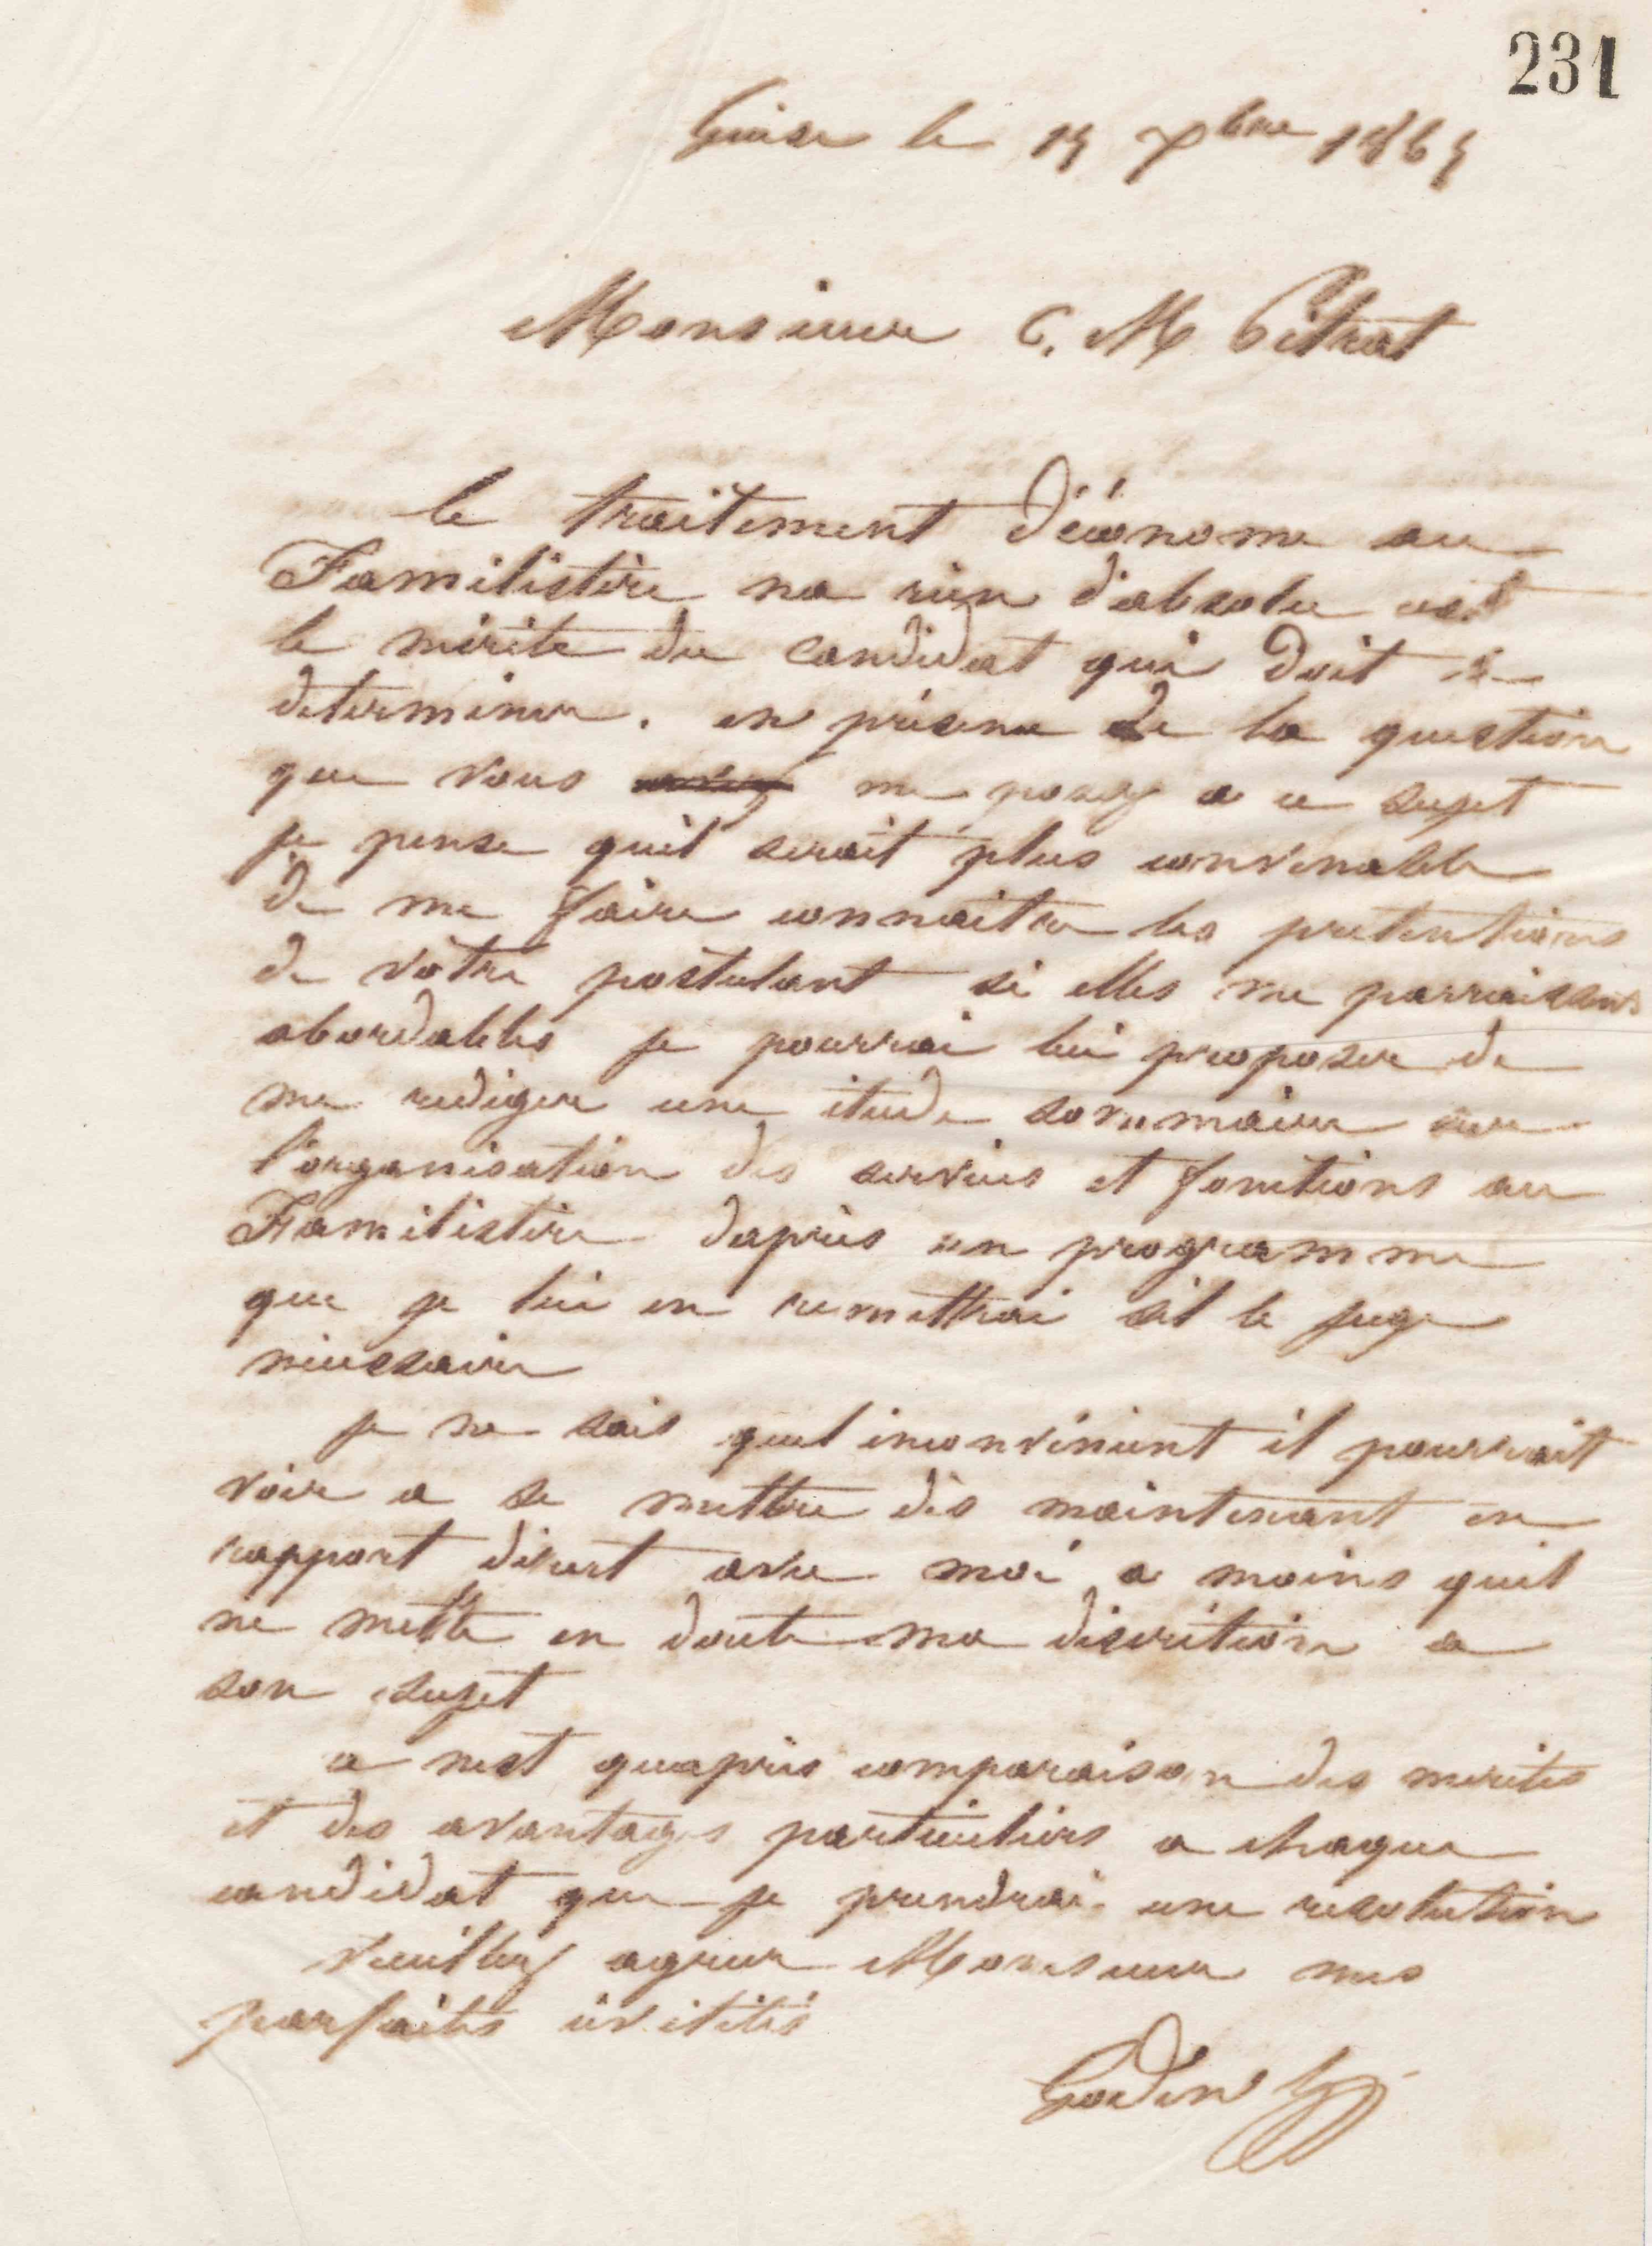 231
Guise le 15 Xbre 1865
Monsieur C. M Pitrat
le traitement d'économe au
Familistère na rien d'absolu cest
le mérite du candidat qui doit le
determiner. en présence de la question
que vous me posez a ce sujet
je pense quil serait plus convenable
de me faire connaitre les pretentions
de votre postulant si elles me parraissent
abordables je pourrai lui proposer de
me rediger une étude sommaire sur
l'organisation des services et fonctions au
Familistère daprès un programme
que je lui en remettrai sil le juge
nécessaire
je ne sais quel inconvénient il pourrait
voir a se mettre dès maintenant en
rapport direct avec moi a moins quil
ne mette en doute ma discrétion a
son sujet
ce nest quaprès comparaison des merites
et des avantages particuliers a chaque
candidat que je prendrai une resolution
Veuillez agreer Monsieur mes
parfaites civilités
Godin